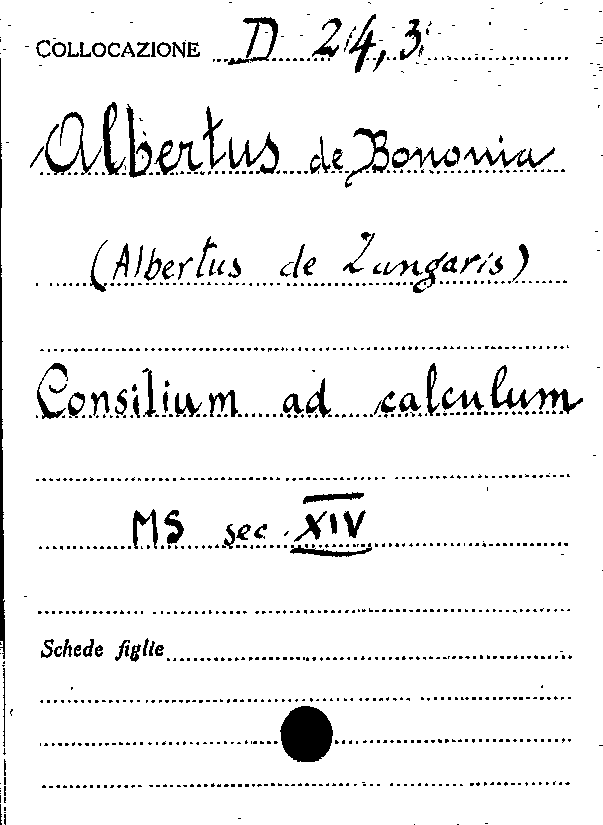 COLLOCAZIONE D 24,3
Albertus de Bononia
(Albertus de Zangaris)
Consilium ad calculum
MS sec. XIV
Schede figlie